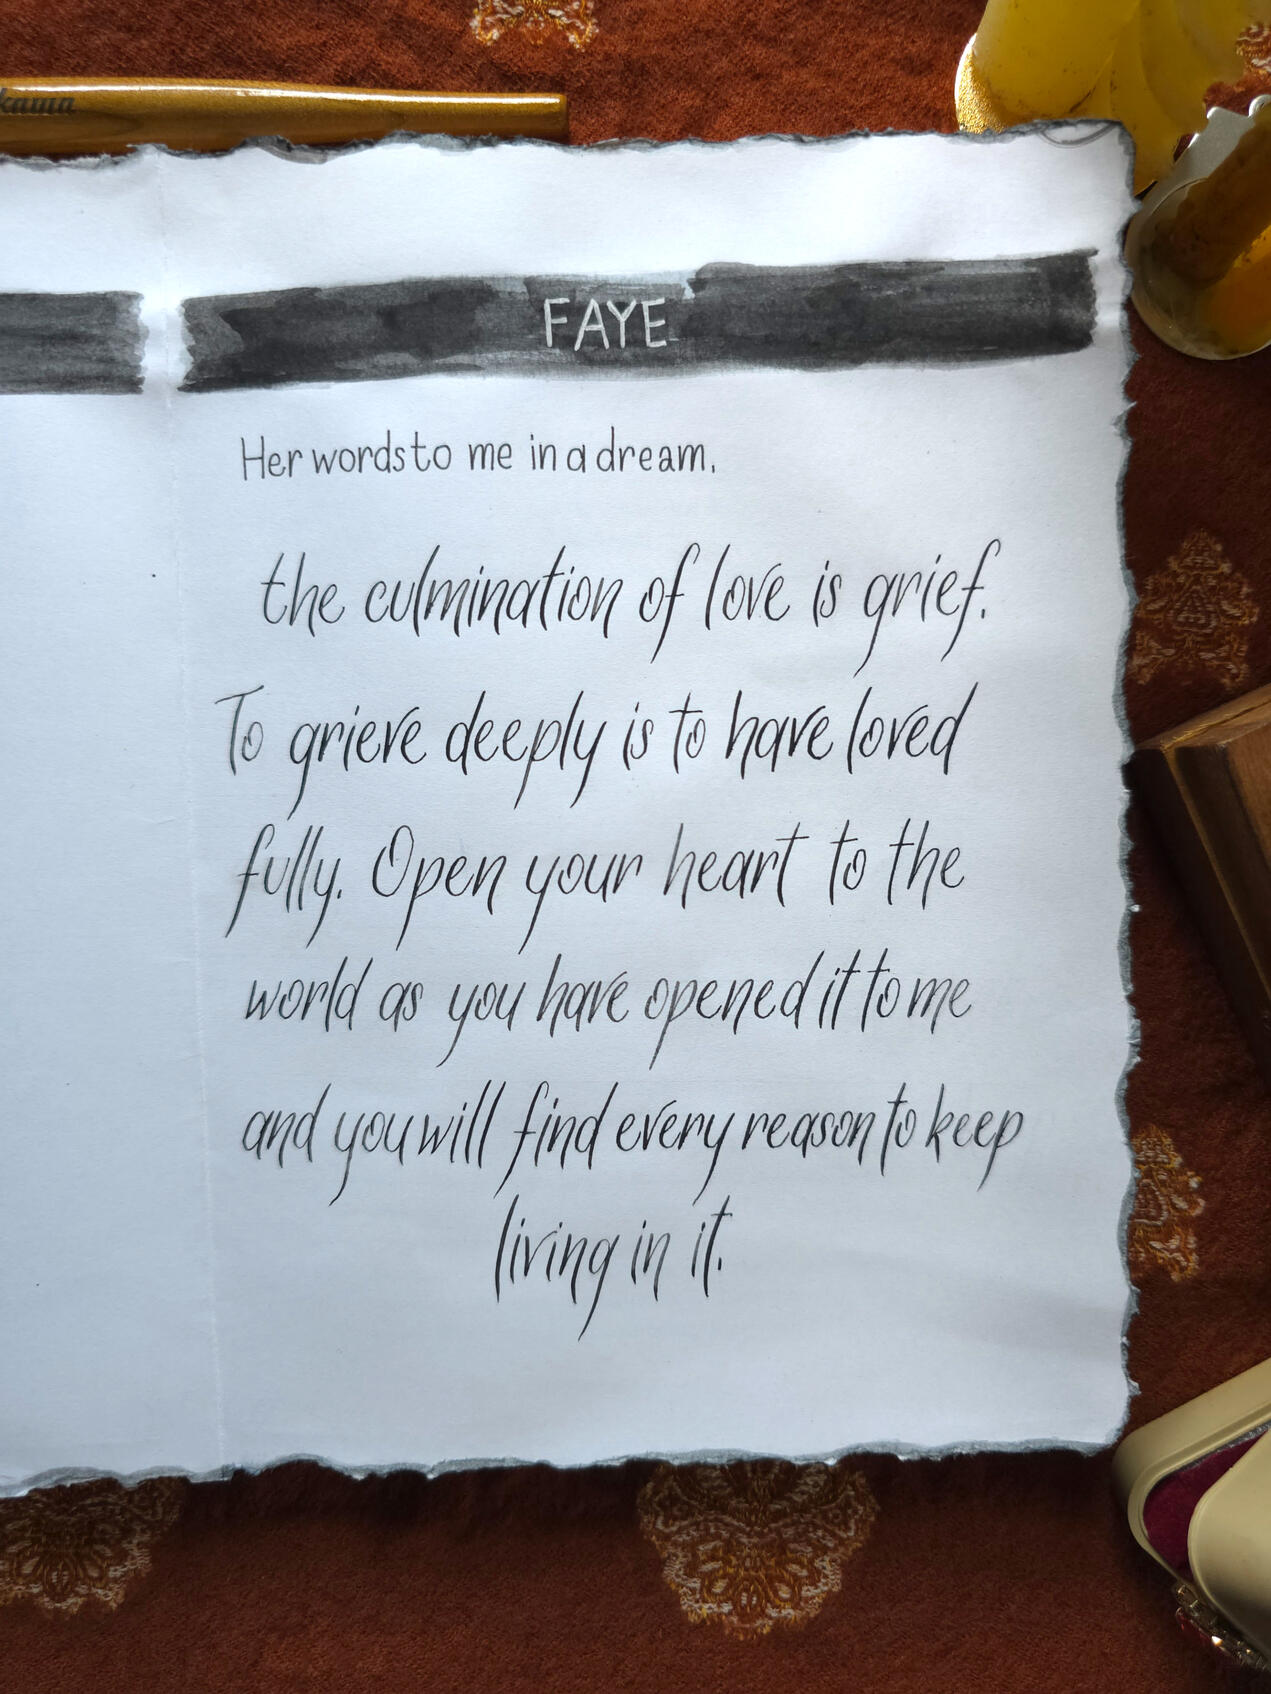 kama
FAYE
Her words to me in a dream.
the culmination of love is grief.
To grieve deeply is to have loved
fully. Open your heart to the
world as you have opened it to me
and you will find every reason to keep
living in it.